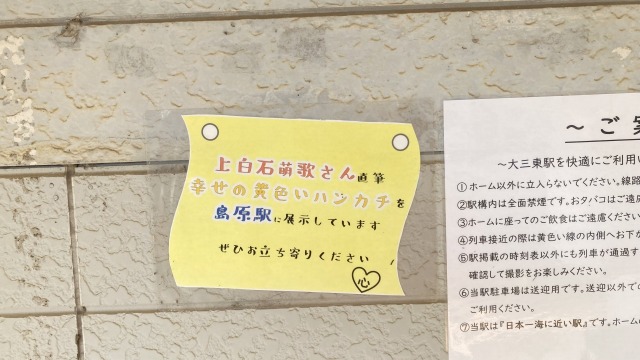 上白石萌歌さん直筆
幸せの黄色いハンカチを
島原駅に展示しています
ぜひお立ち寄りください
心
～ご案
～大三東駅を快適にご利用い
①ホーム以外に立入らないでください。線路
②駅構内は全面禁煙です。おタバコはご遠慮
③ホームに座ってのご飲食はご遠慮ください
④列車接近の際は黄色い線の内側へお下が
⑤駅掲載の時刻表以外にも列車が通過す
確認して撮影をお楽しみください。
⑥当駅駐車場は送迎用です。送迎以外での
ご利用ください。
⑦当駅は『日本一海に近い駅』です。ホーム